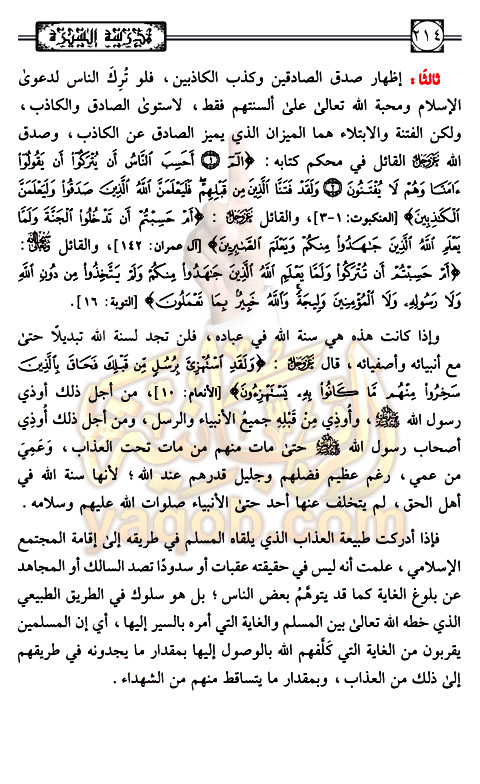 ٢١٤
مدرسة السيرة
ثالثًا: إظهار صدق الصادقين وكذب الكاذبين، فلو تُرِكَ الناس لدعوىٰ
الإسلام ومحبة الله تعالىٰ علىٰ ألسنتهم فقط، لاستوىٰ الصادق والكاذب،
ولكن الفتنة والابتلاء هما الميزان الذي يميز الصادق عن الكاذب، وصدق
الله عَزَّوَجَلَّ القائل في محكم كتابه: ﴿الٓمٓ ۝١ أَحَسِبَ ٱلنَّاسُ أَن يُتْرَكُوٓا۟ أَن يَقُولُوٓا۟
ءَامَنَّا وَهُمْ لَا يُفْتَنُونَ ۝٢ وَلَقَدْ فَتَنَّا ٱلَّذِينَ مِن قَبْلِهِمْ ۖ فَلَيَعْلَمَنَّ ٱللَّهُ ٱلَّذِينَ صَدَقُوا۟ وَلَيَعْلَمَنَّ
ٱلْكَٰذِبِينَ﴾ [العنكبوت: ١-٣]، والقائل عَزَّوَجَلَّ: ﴿أَمْ حَسِبْتُمْ أَن تَدْخُلُوا۟ ٱلْجَنَّةَ وَلَمَّا
يَعْلَمِ ٱللَّهُ ٱلَّذِينَ جَٰهَدُوا۟ مِنكُمْ وَيَعْلَمَ ٱلصَّٰبِرِينَ﴾ [آل عمران: ١٤٢]، والقائل :
﴿أَمْ حَسِبْتُمْ أَن تُتْرَكُوا۟ وَلَمَّا يَعْلَمِ ٱللَّهُ ٱلَّذِينَ جَٰهَدُوا۟ مِنكُمْ وَلَمْ يَتَّخِذُوا۟ مِن دُونِ ٱللَّهِ
وَلَا رَسُولِهِۦ وَلَا ٱلْمُؤْمِنِينَ وَلِيجَةً ۚ وَٱللَّهُ خَبِيرٌۢ بِمَا تَعْمَلُونَ﴾ [التوبة: ١٦].
وإذا كانت هذه هي سنة الله في عباده، فلن تجد لسنة الله تبديلًا حتىٰ
مع أنبيائه وأصفيائه، قال عَزَّوَجَلَّ: ﴿وَلَقَدِ ٱسْتُهْزِئَ بِرُسُلٍ مِّن قَبْلِكَ فَحَاقَ بِٱلَّذِينَ
سَخِرُوا۟ مِنْهُم مَّا كَانُوا۟ بِهِۦ يَسْتَهْزِءُونَ﴾ [الأنعام: ١٠]، من أجل ذلك أوذي
رسول الله ﷺ، وأُوذِي مِن قَبْلِهِ جميعُ الأنبياء والرسل، ومن أجل ذلك أُوذِي
أصحاب رسول الله ﷺ حتىٰ مات منهم من مات تحت العذاب، وَعَمِيَ
من عمي، رغم عظيم فضلهم وجليل قدرهم عند الله؛ لأنها سنة الله في
أهل الحق، لم يتخلف عنها أحد حتىٰ الأنبياء صلوات الله عليهم وسلامه.
فإذا أدركت طبيعة العذاب الذي يلقاه المسلم في طريقه إلىٰ إقامة المجتمع
الإسلامي، علمت أنه ليس في حقيقته عقبات أو سدودًا تصد السالك أو المجاهد
عن بلوغ الغاية كما قد يتوهَّمُ بعض الناس؛ بل هو سلوك في الطريق الطبيعي
الذي خطه الله تعالىٰ بين المسلم والغاية التي أمره بالسير إليها، أي إن المسلمين
يقربون من الغاية التي كَلَّفهم الله بالوصول إليها بمقدار ما يجدونه في طريقهم
إلىٰ ذلك من العذاب، وبمقدار ما يتساقط منهم من الشهداء.
yaqob.com